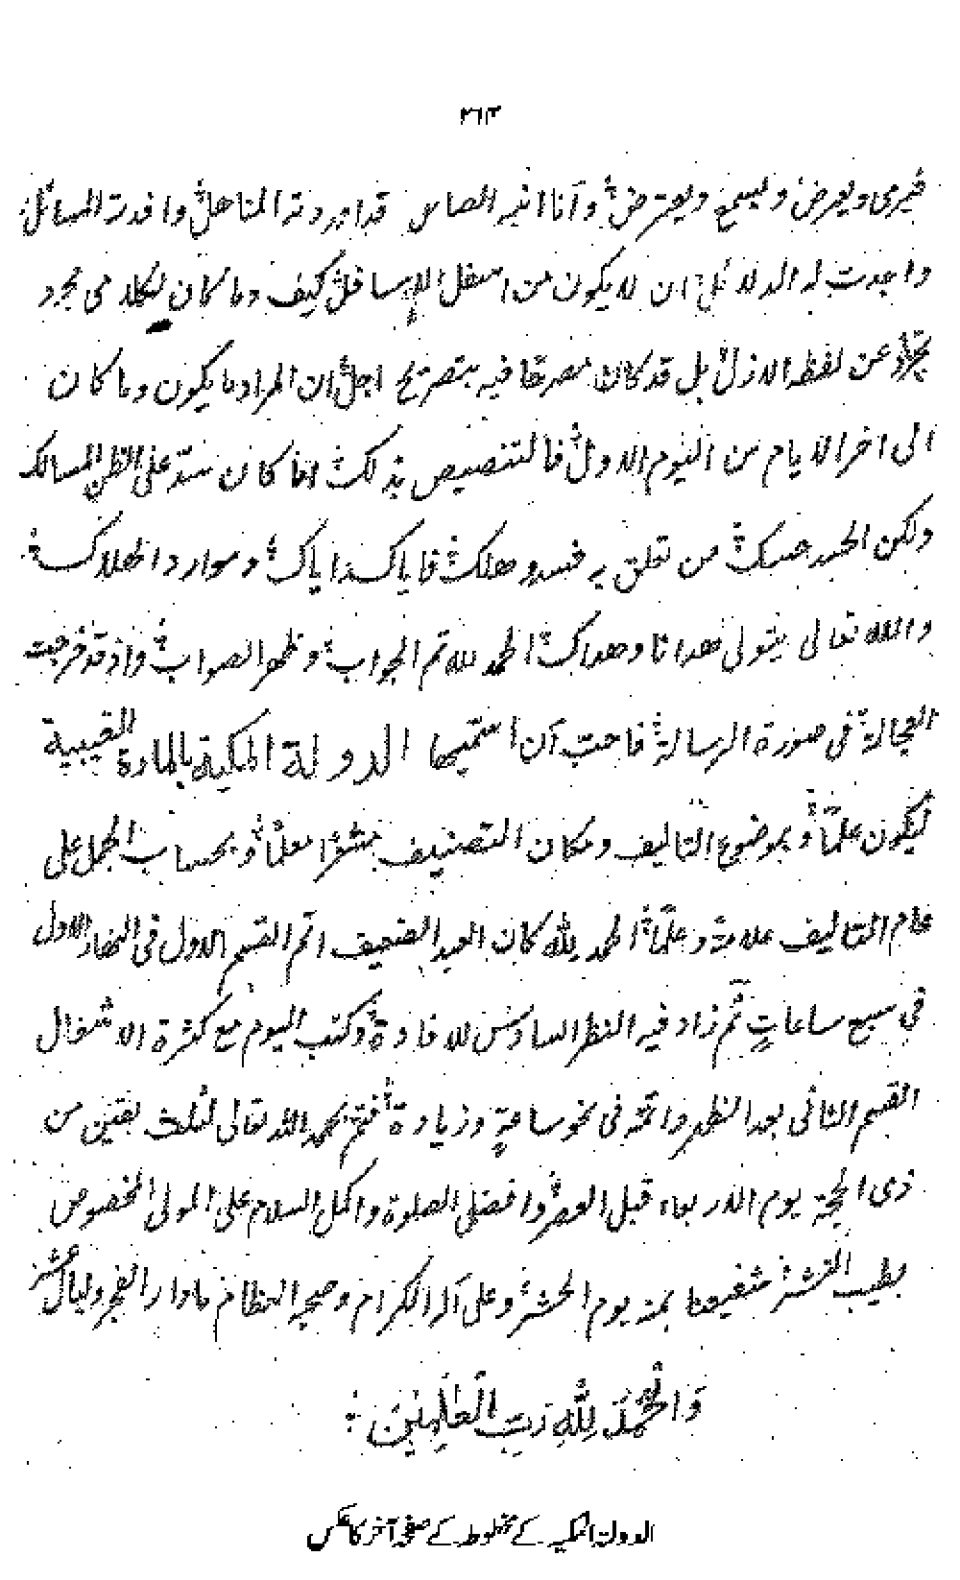 ٢٦٣
فيرى ويعرض ويسمح ويعترض وأنا انبه العاس قد اوردته المناهل وافدته المسائل
واجدت له الدلائل ان لا يكون من اسفل الاسافل كيف وما كان لكلامى مجرد
عن لفظه الازل بل قد كان مصرحا فيه بتصريح اجل ان المراد ما يكون وما كان
الى اخر الايام من اليوم الاول فالتنصيص بذلك انما كان على المسالك
ولكن الحسد حسك من تعلق به فسد وهلك فاياك اياك وموارد الهلاك
والله تعالى يتولى هدانا وهداك الحمد لله تم الجواب وظهر الصواب واذ قد خرجت
العجالة فى صورة الرسالة فاحببت أن اسميها الدولة المكية بالمادة الغيبية
ليكون علما وبموضوع التاليف ومكان التصنيف مشعرا معلما وبحساب الجمل على
عام التاليف علامة وعلما الحمد لله كان العبد الضعيف اتم القسم الاول فى النهار الاول
في سبع ساعات ثم زاد فيه النظر السادس للافادة وكتب اليوم مع كثرة الاشغال
القسم الثانى بعد الظهر واتمه فى نحو ساعة وزيادة فتم بحمد الله تعالى لثلث بقين من
ذى الحجة يوم الاربعاء قبل العصر وافضل الصلوة واكمل السلام على المولى المخصوص
بطيب النشر شفيعنا بمنه يوم الحشر وعلى آله الكرام وصحبه العظام ما دار الفجر وليال عشر
وَالْحَمْدُ لِلّٰهِ رَبِّ الْعٰلَمِيْنَ
الدولۃ المکیہ کے مخطوطہ کے صفحہ آخر کا عکس